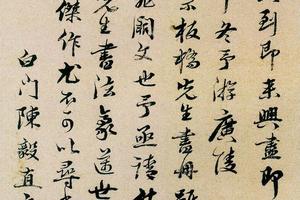 到即未興盡即
冬予游廣陵
板橋先生書冊
闕文也予亟請
先生書法篆逆世
傑作尤不可以尋
白门陳毅直